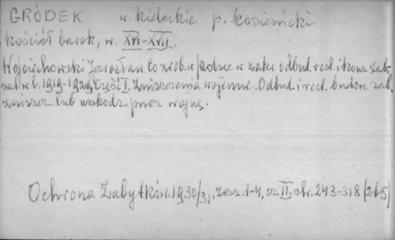 GRÓDEK w. kieleckie p. kozienicki
kościół barok, w. XVI-XVII.
Wojciechowski Jarosław Co zrob. w Polsce w zakr. odbud. rest. i kons. zab.
w l. 1919-1929, Część I, Zniszczenia wojenne. Odbud. i rest. budow. zab.
zniszcz. lub uszkodz. przez wojnę.
Ochrona Zabytków. 1930/31, zesz. 1-4, cz II, str. 243-318 (265)